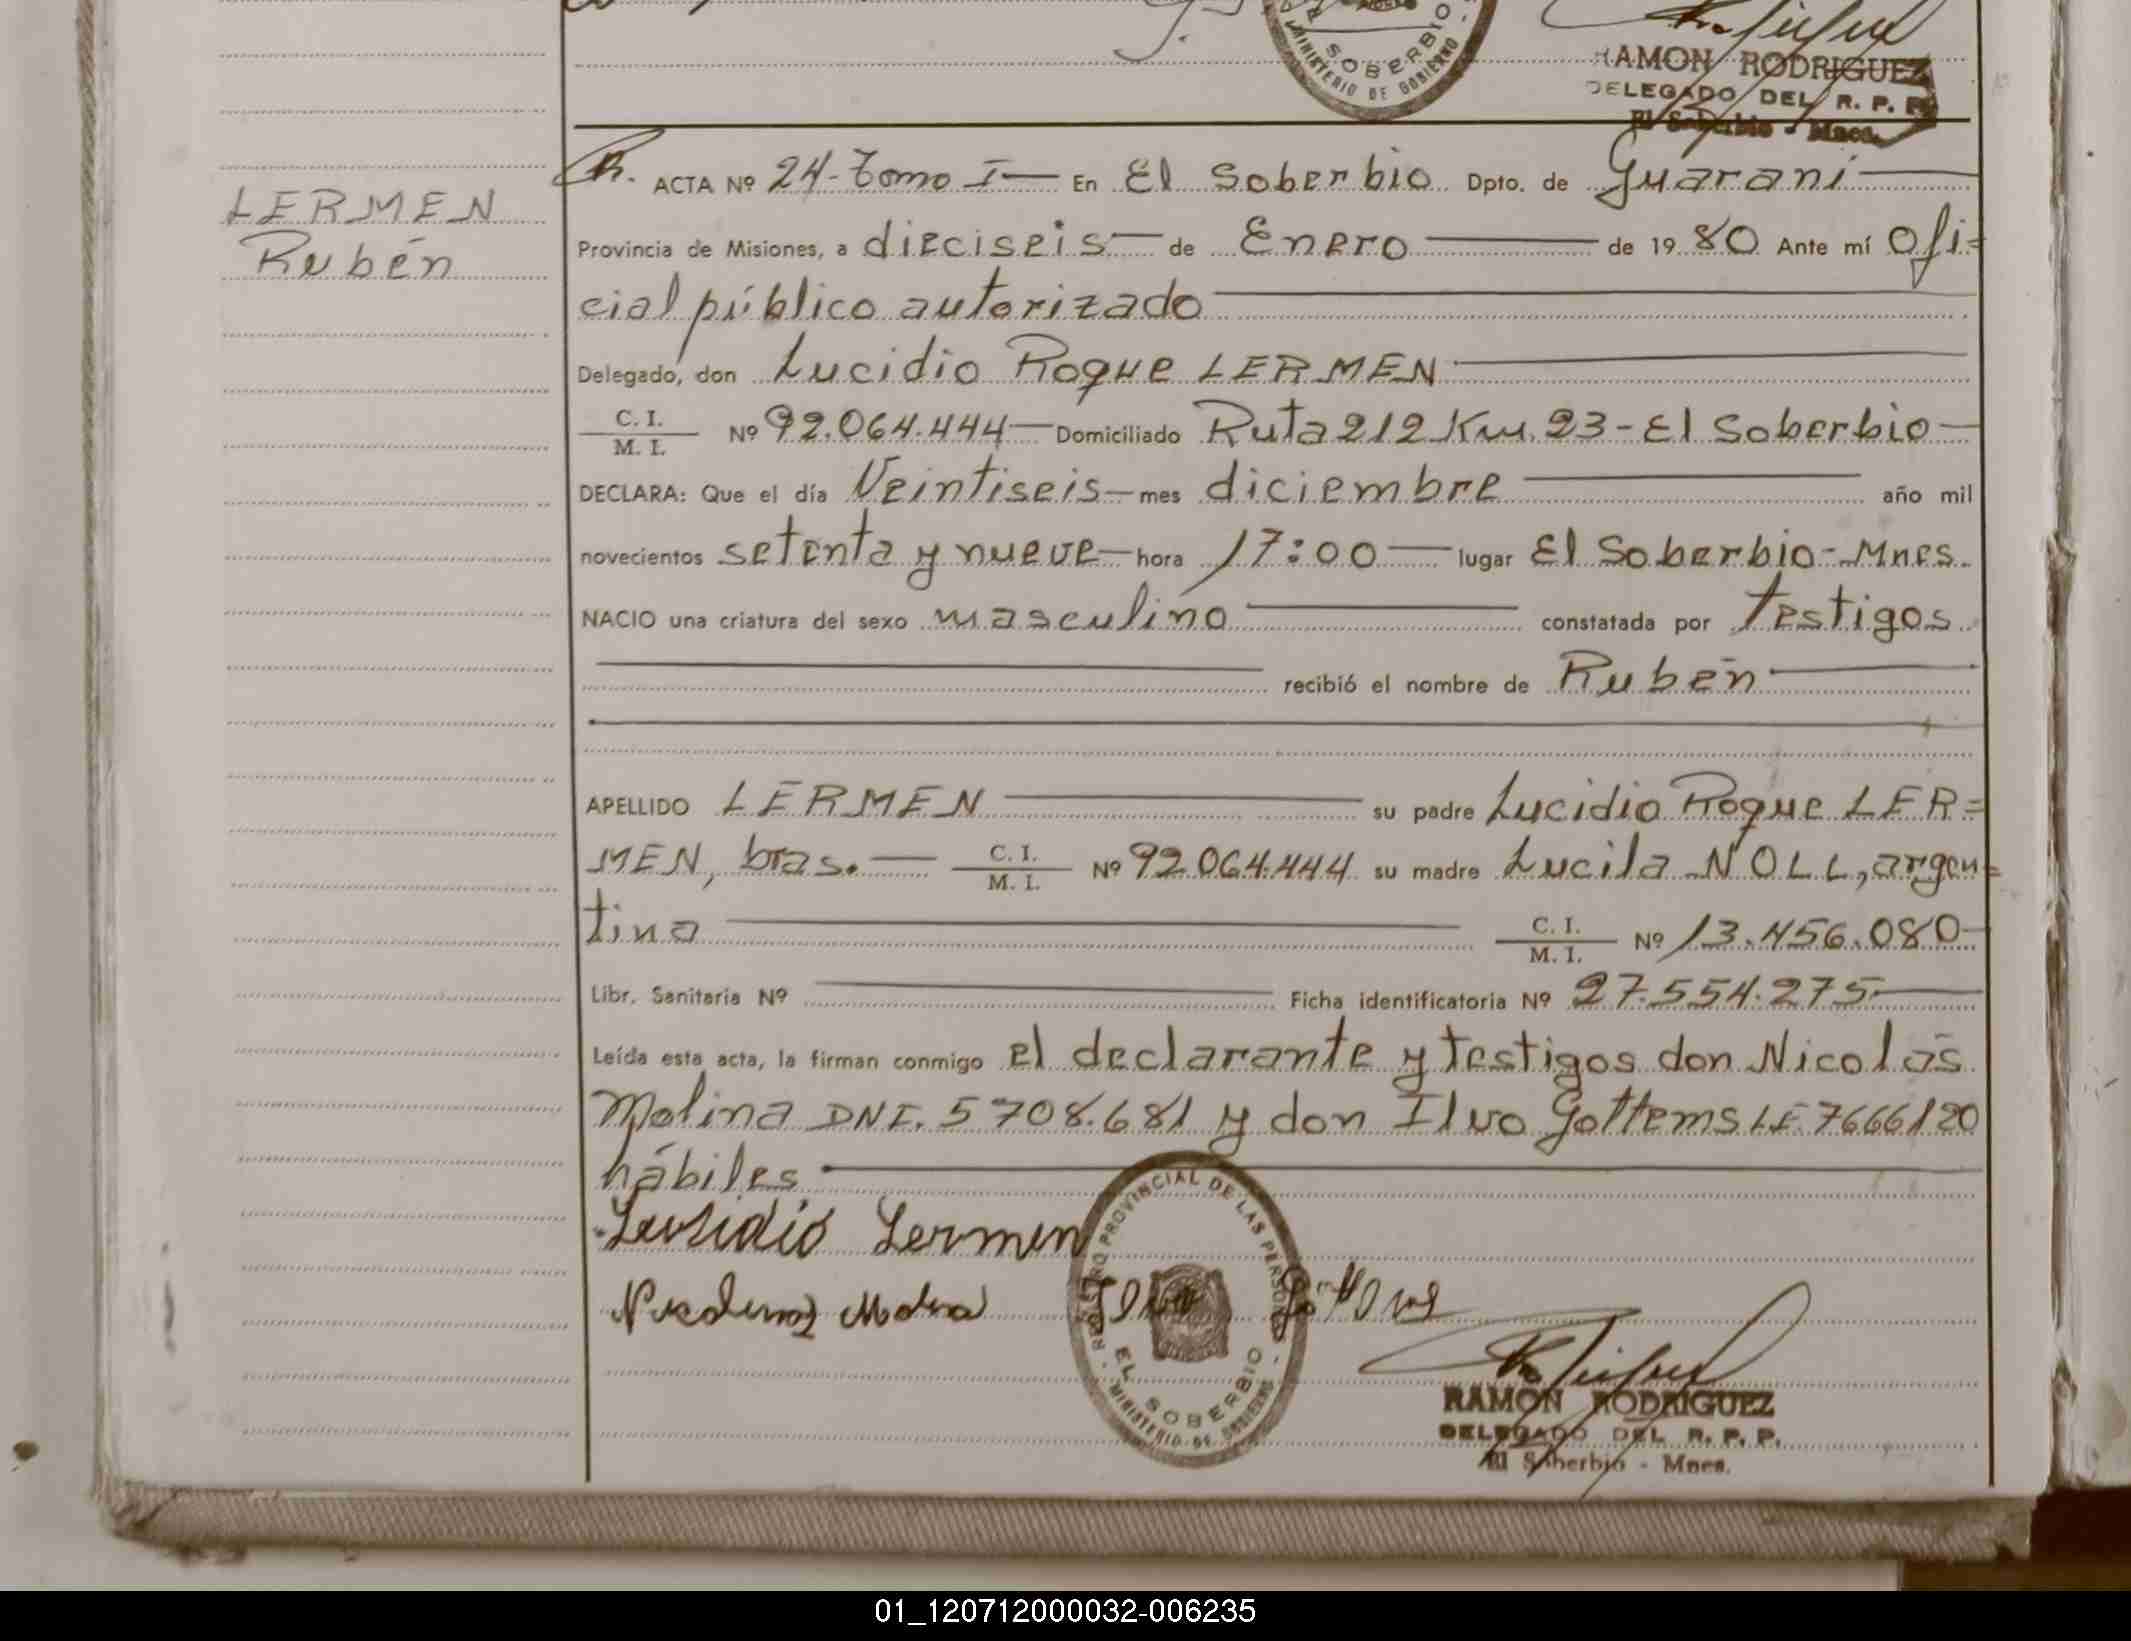 SOBERBIO
MINISTERIO DE GOBIERNO
RAMON RODRIGUEZ
DELEGADO DEL R. P. P.
El Soberbio - Mnes.
LERMEN
Rubén
ACTA Nº 24-Tomo I — En El Soberbio Dpto. de Guaraní
Provincia de Misiones, a dieciseis — de Enero — de 1980 Ante mí Ofi=
cial público autorizado
Delegado, don Lucidio Roque LERMEN
C. I.
M. I. Nº 92.064.444 — Domiciliado Ruta 212 Km. 23 - El Soberbio —
DECLARA: Que el día Veintiseis — mes diciembre — año mil
novecientos setenta y nueve — hora 17:00 — lugar El Soberbio - Mnes.
NACIO una criatura del sexo masculino — constatada por testigos
recibió el nombre de Rubén
APELLIDO LERMEN — su padre Lucidio Roque LER=
MEN, bras. — C. I. M. I. Nº 92.064.444 su madre Lucila NOLL, argen=
tina — C. I. M. I. Nº 13.456.080 —
Libr. Sanitaria Nº — Ficha identificatoria Nº 27.554.275 —
Leída esta acta, la firman conmigo el declarante y testigos don Nicolás
Molina DNI. 5708.681 y don Ilvo Gottems LE. 7666120
hábiles
Lusidio Lermen
REGISTRO PROVINCIAL DE LAS PERSONAS
EL SOBERBIO
MINISTERIO DE GOBIERNO
RAMON RODRIGUEZ
DELEGADO DEL R. P. P.
El Soberbio - Mnes.
01_120712000032-006235